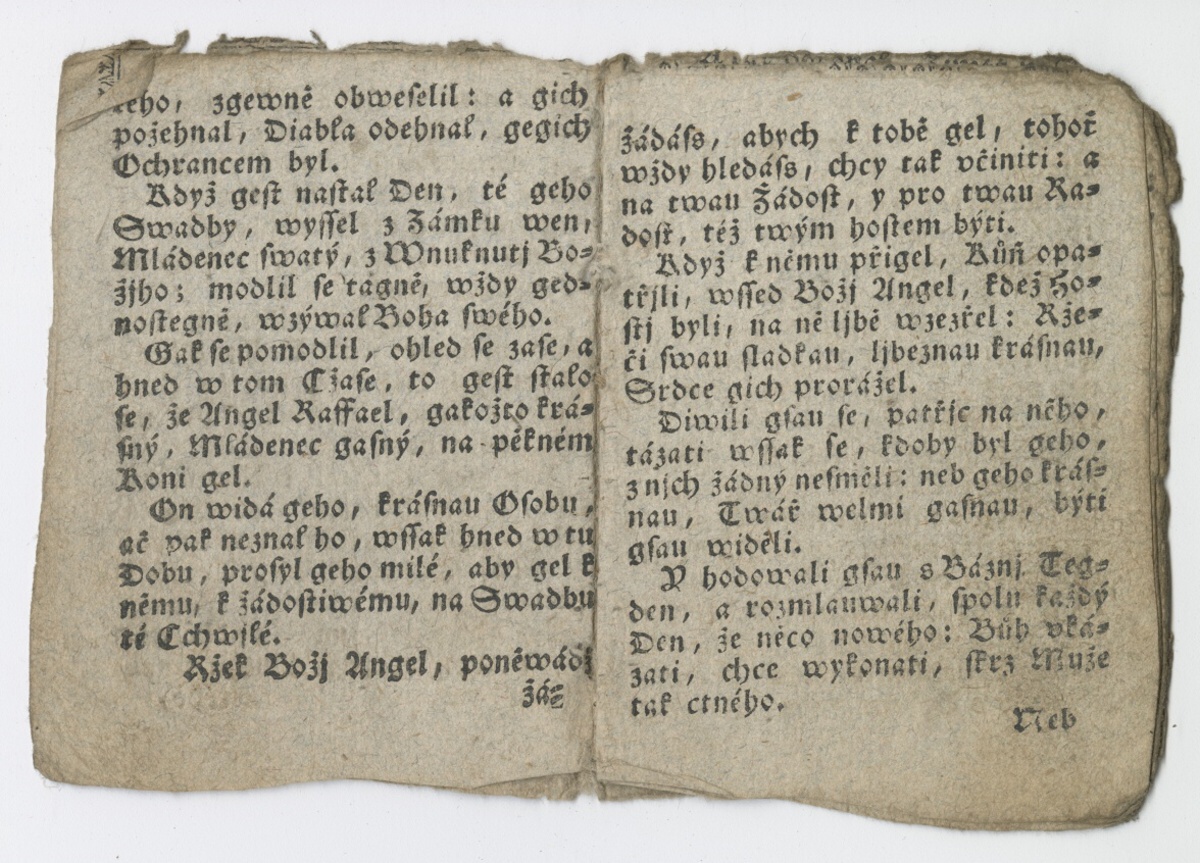 zgewně obweselil: a gich
požehnal, Diabla odehnal, gegich
Ochrancem byl.
Když gest nastal Den, té geho
Swadby, wyssel z Zámku wen,
Mládenec swatý, z Wnuknutj Bo-
žjho; modlil se tagně, wždy ged-
nostegně, wzýwal Boha swého.
Gak se pomodlil, ohled se zase, a
hned w tom Cžase, to gest stalo
se, že Angel Raffael, gakožto krá-
sný, Mládenec gasný, na pěkném
Koni gel.
On widá geho, krásnau Osobu,
ač pak neznal ho, wssak hned w tu
Dobu, prosyl geho milé, aby gel k
němu, k žádostiwému, na Swadbu
té Cchwjlé.
Ržek Božj Angel, poněwádž
žá-
žádáss, abych k tobě gel, tohoť
wždy hledáss, chcy tak včiniti: a
na twau Žádost, y pro twau Ra-
dost, též twým hostem býti.
Když k němu přigel, Kůň opa-
třjli, wssed Božj Angel, kdež Ho-
stj byli, na ně ljbě wzezřel: Rže-
čj swau sladkau, ljbeznau krásnau,
Srdce gich prorážel.
Diwili gsau se, patřjc na něho,
tázati wssak se, kdoby byl geho,
z njch žádný nesměli: neb geho krás-
nau, Twář welmi gasnau, býti
gsau widěli.
Y hodowali gsau s Báznj Teg-
den, a rozmlauwali, spolu každý
Den, že něco nowého: Bůh vká-
zati, chce wykonati, skrz Muže
tak ctného.
Neb